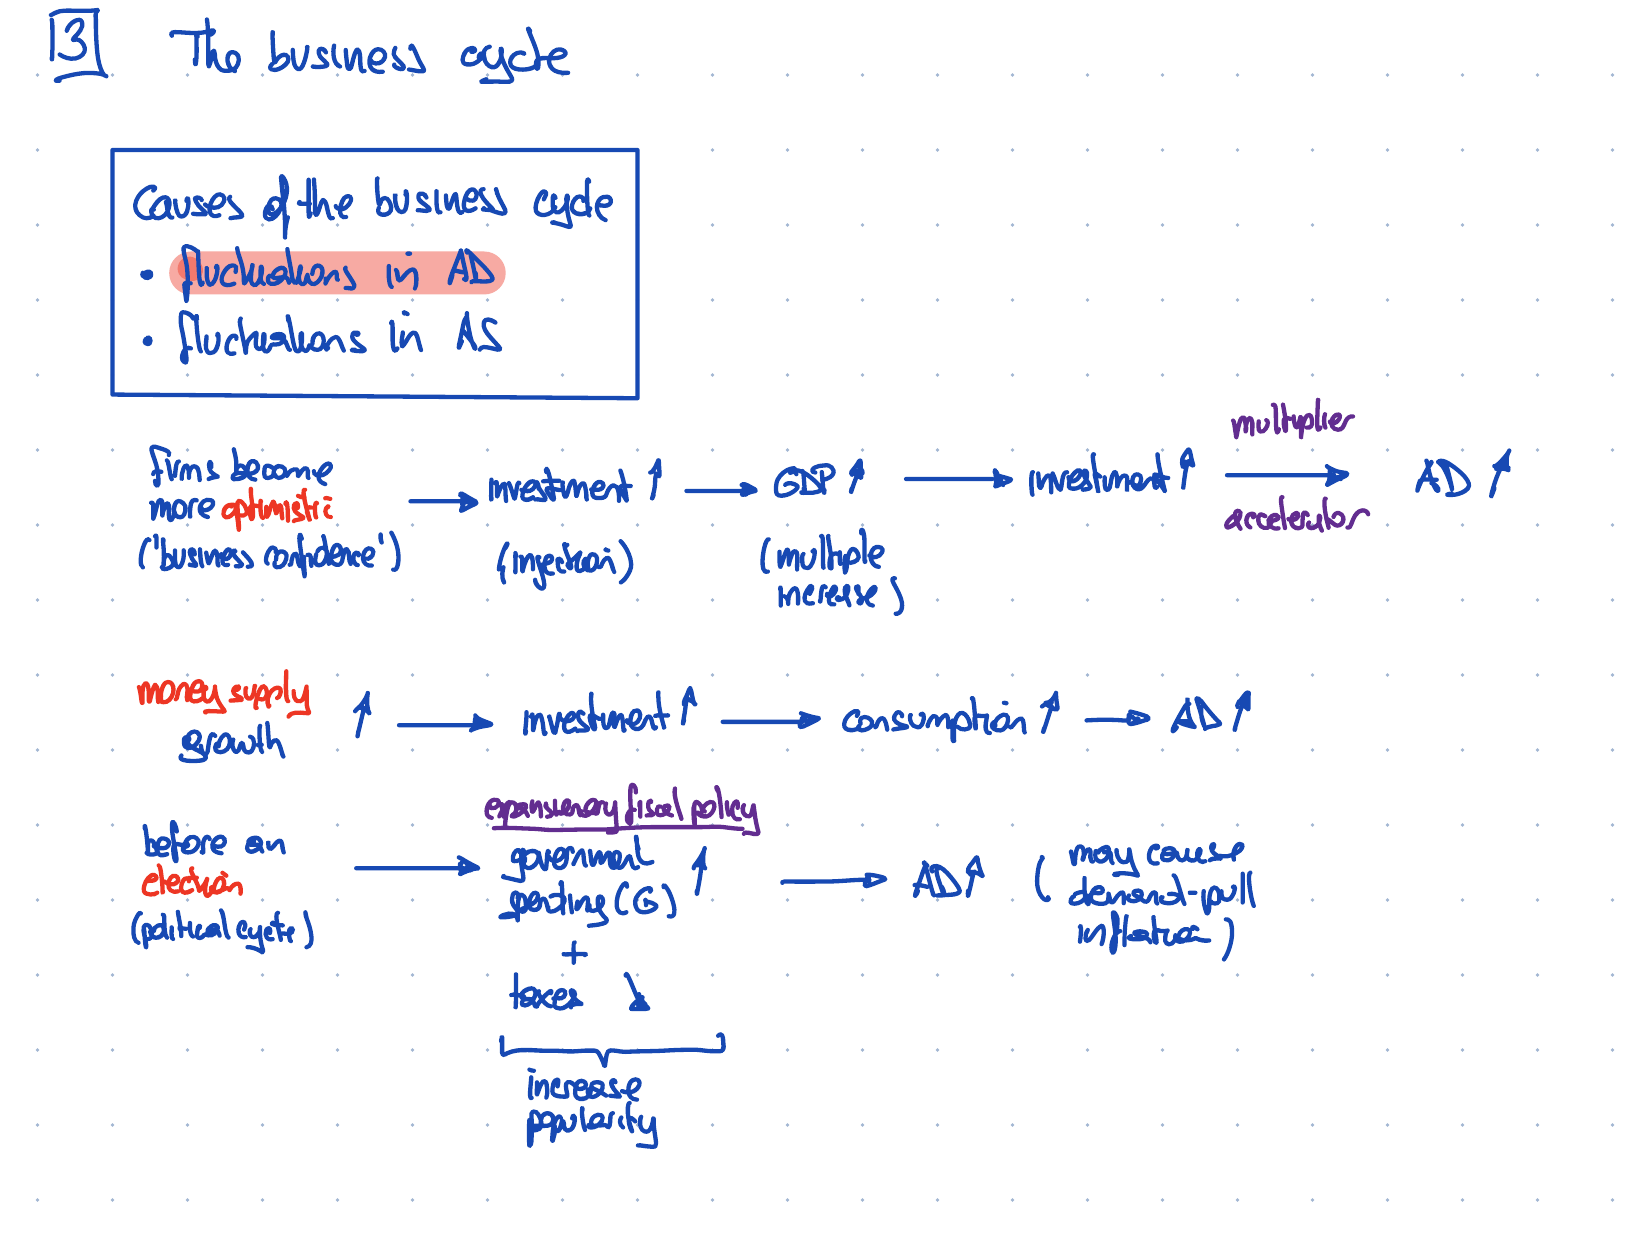 3 The business cycle
Causes of the business cycle
• fluctuations in AD
• fluctuations in AS
firms become
more optimistic
('business confidence')
→ investment ↑
(injection)
→ GDP ↑
(multiple
increase)
→ investment ↑
multiplier
→
accelerator
AD ↑
money supply
growth ↑
→ investment ↑ → consumption ↑ → AD ↑
before an
election
(political cycle)
→
expansionary fiscal policy
government
spending (G) ↑
+
taxes ↓
increase
popularity
→ AD ↑
(may cause
demand-pull
inflation)